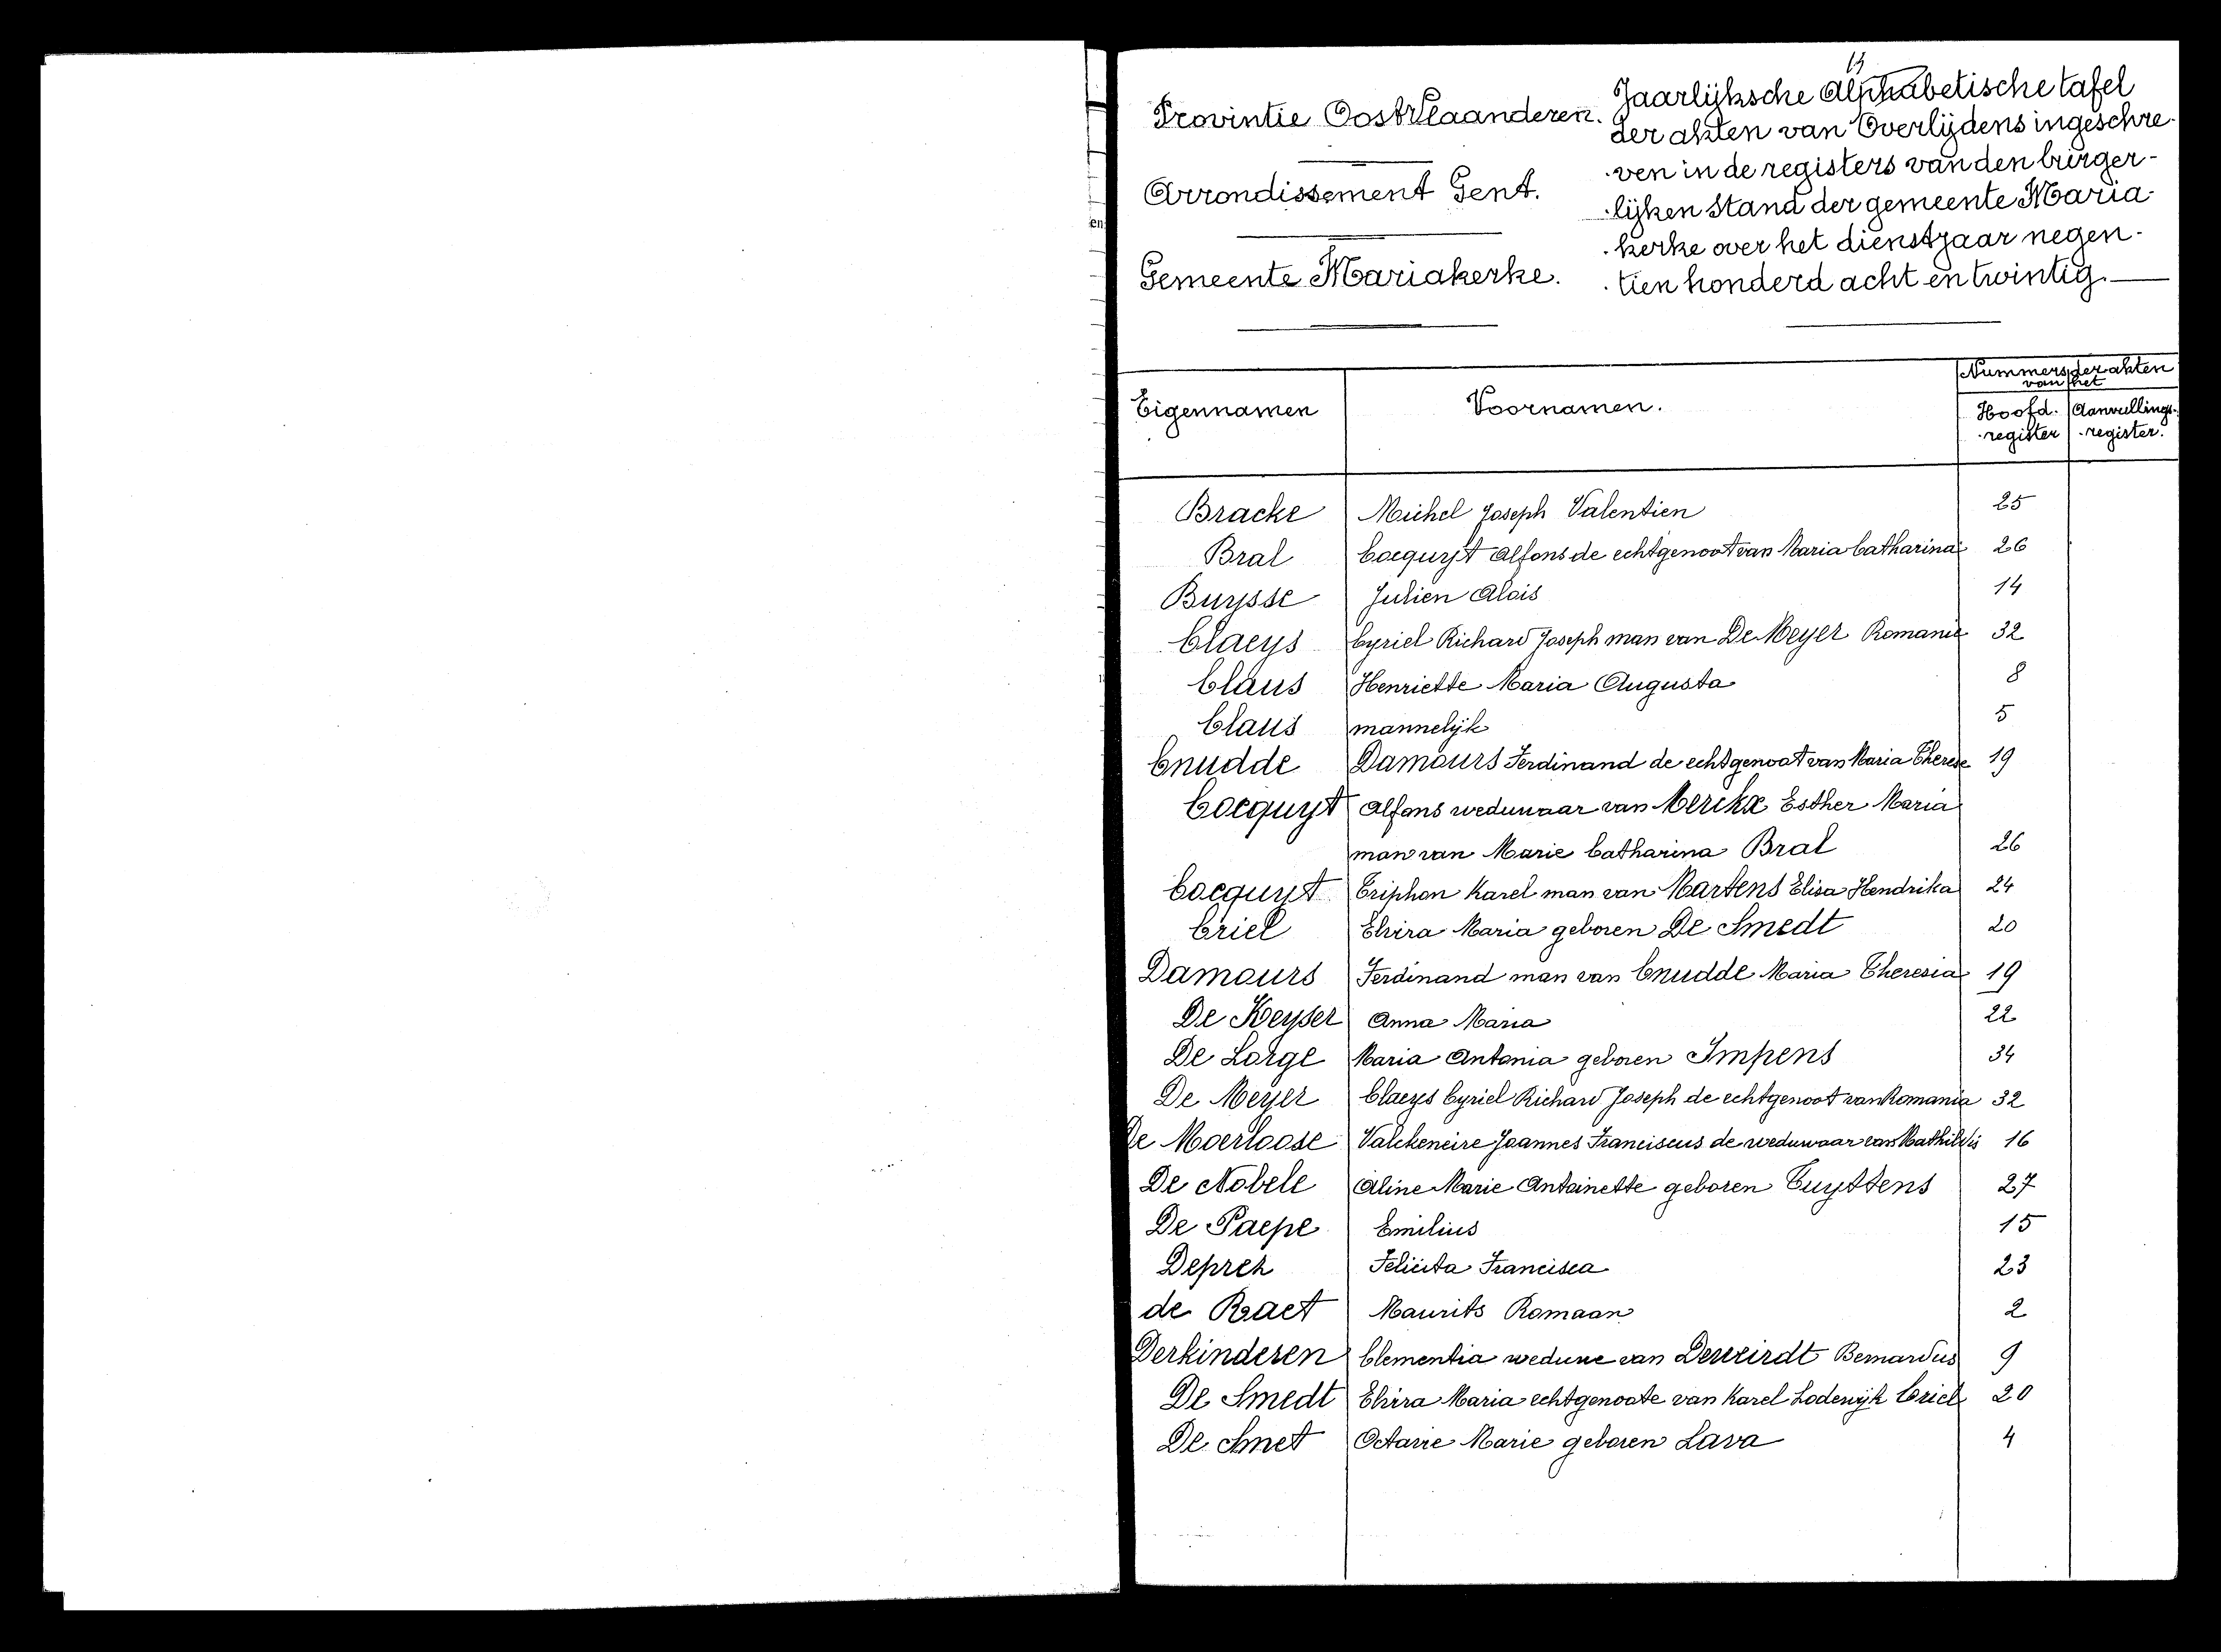 13
Provintie Oost Vlaanderen.
Arrondissement Gent.
Gemeente Mariakerke.
Jaarlijksche Alphabetische tafel
der akten van Overlijdens ingeschre-
ven in de registers van den burger-
lijken Stand der gemeente Maria-
kerke over het dienstjaar negen-
tien honderd acht en twintig.
en
Eigennamen Voornamen. Nummers der akten
van het
Hoofd- Aanvullings-
register register.
Bracke Michel Joseph Valentien 25
Bral Cocquyt Alfons de echtgenoot van Maria Catharina 26
Buysse Julien Alois 14
Claeys Cyriel Richard Joseph man van De Meyer Romanie 32
Claus Henriette Maria Augusta 8
Claus mannelijk 5
Cnudde Damours Ferdinand de echtgenoot van Maria Therese 19
Cocquyt Alfons weduwaar van Merckx Esther Maria
man van Marie Catharina Bral 26
Cocquyt Triphon Karel man van Martens Elisa Hendrika 24
Criel Elvira Maria geboren De Smedt 20
Damours Ferdinand man van Cnudde Maria Theresia 19
De Keyser Anna Maria 22
De Lorge Maria Antonia geboren Impens 34
De Meyer Claeys Cyriel Richard Joseph de echtgenoot van Romania 32
De Moerloose Valckeneire Joannes Franciscus de weduwaar van Mathildis 16
De Nobele Aline Marie Antoinette geboren Tuyttens 27
De Paepe Emilius 15
Deprez Felicita Francisca 23
de Raet Maurits Romaan 2
Derkinderen Clementia weduwe van Deweirdt Bernardus 9
De Smedt Elvira Maria echtgenoote van Karel Lodewijk Criel 20
De Smet Octavie Marie geboren Lava 4